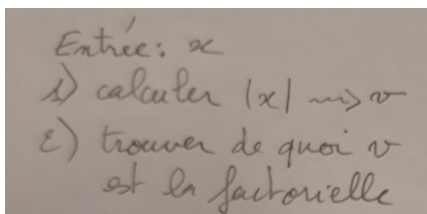 Entrée: x
1) calculer |x| ~~> v
2) trouver de quoi v
est la factorielle